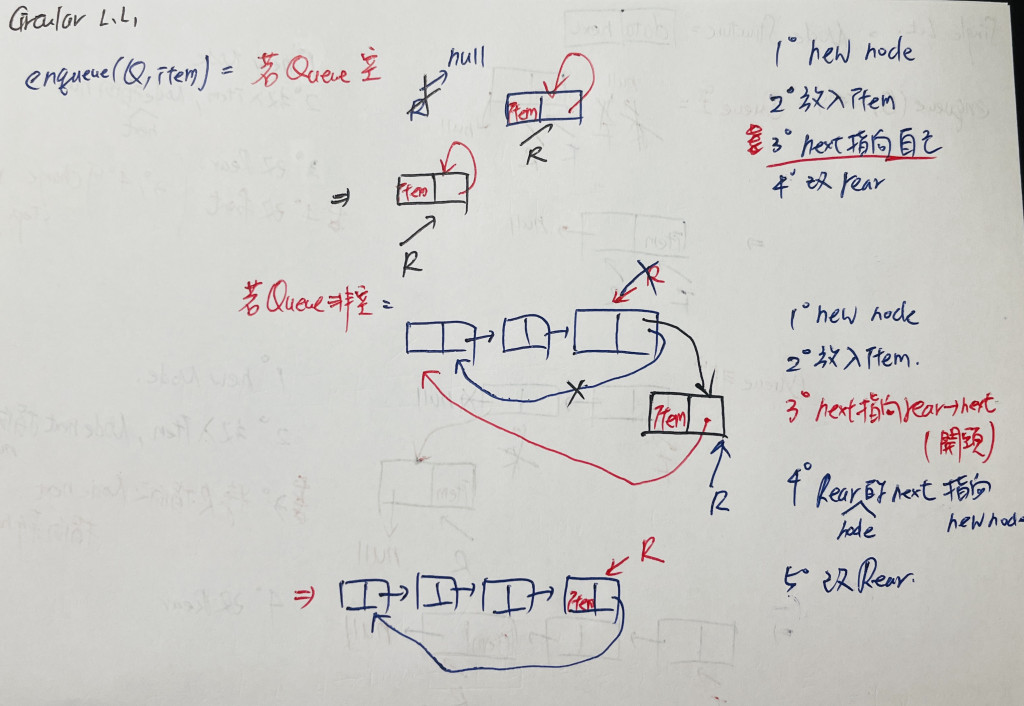 Circular L.L.
enqueue(Q, item) = 若Queue空
null
R
item
R
1° new node
2° 放入item
3° next指向自己
4° 改rear
item
R
若Queue非空=
R
item
R
1° new node
2° 放入item.
3° next指向rear→next
(開頭)
4° Rear的next指向
node
new node
5° 改Rear.
⇒
R
item